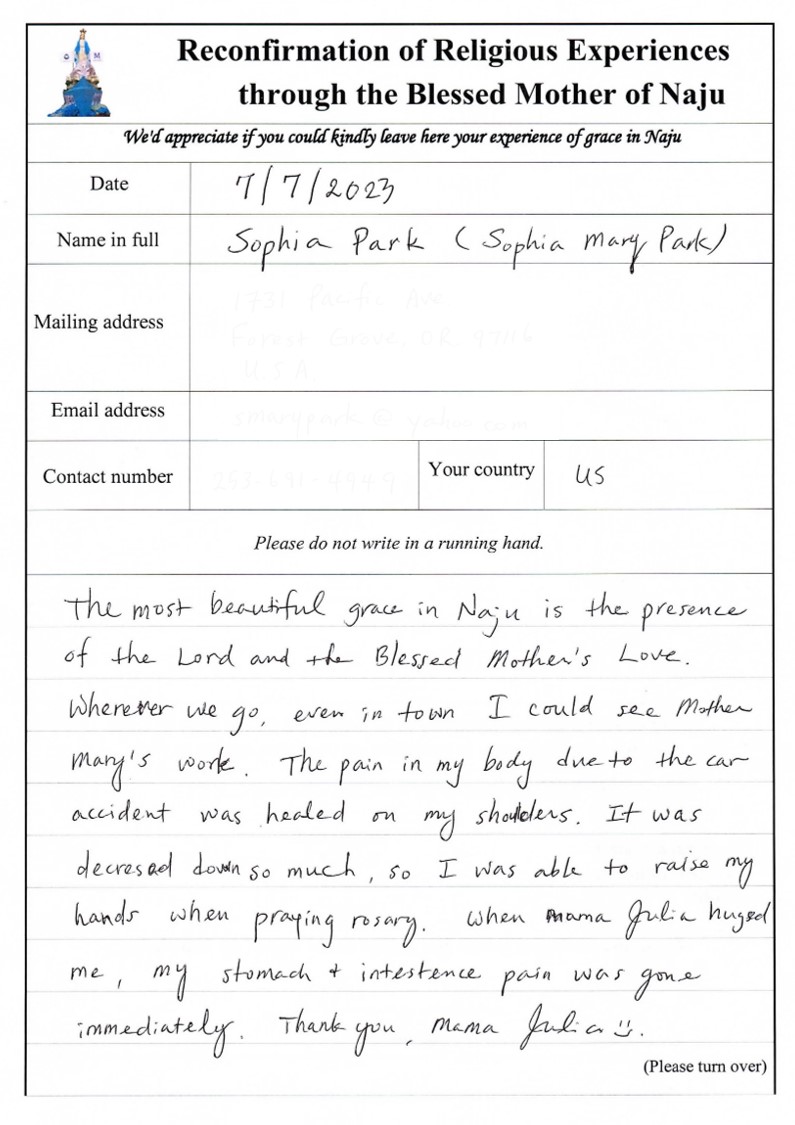 Reconfirmation of Religious Experiences
through the Blessed Mother of Naju
We'd appreciate if you could kindly leave here your experience of grace in Naju
Date 7/7/2023
Name in full Sophia Park (Sophia Mary Park)
Mailing address
Email address
Contact number Your country US
Please do not write in a running hand.
The most beautiful grace in Naju is the presence
of the Lord and the Blessed Mother's Love.
Wherever we go, even in town I could see Mother
Mary's work. The pain in my body due to the car
accident was healed on my shoulders. It was
decresed down so much, so I was able to raise my
hands when praying rosary. When mama Julia huged
me, my stomach + intestence pain was gone
immediately. Thank you, Mama Julia :).
(Please turn over)